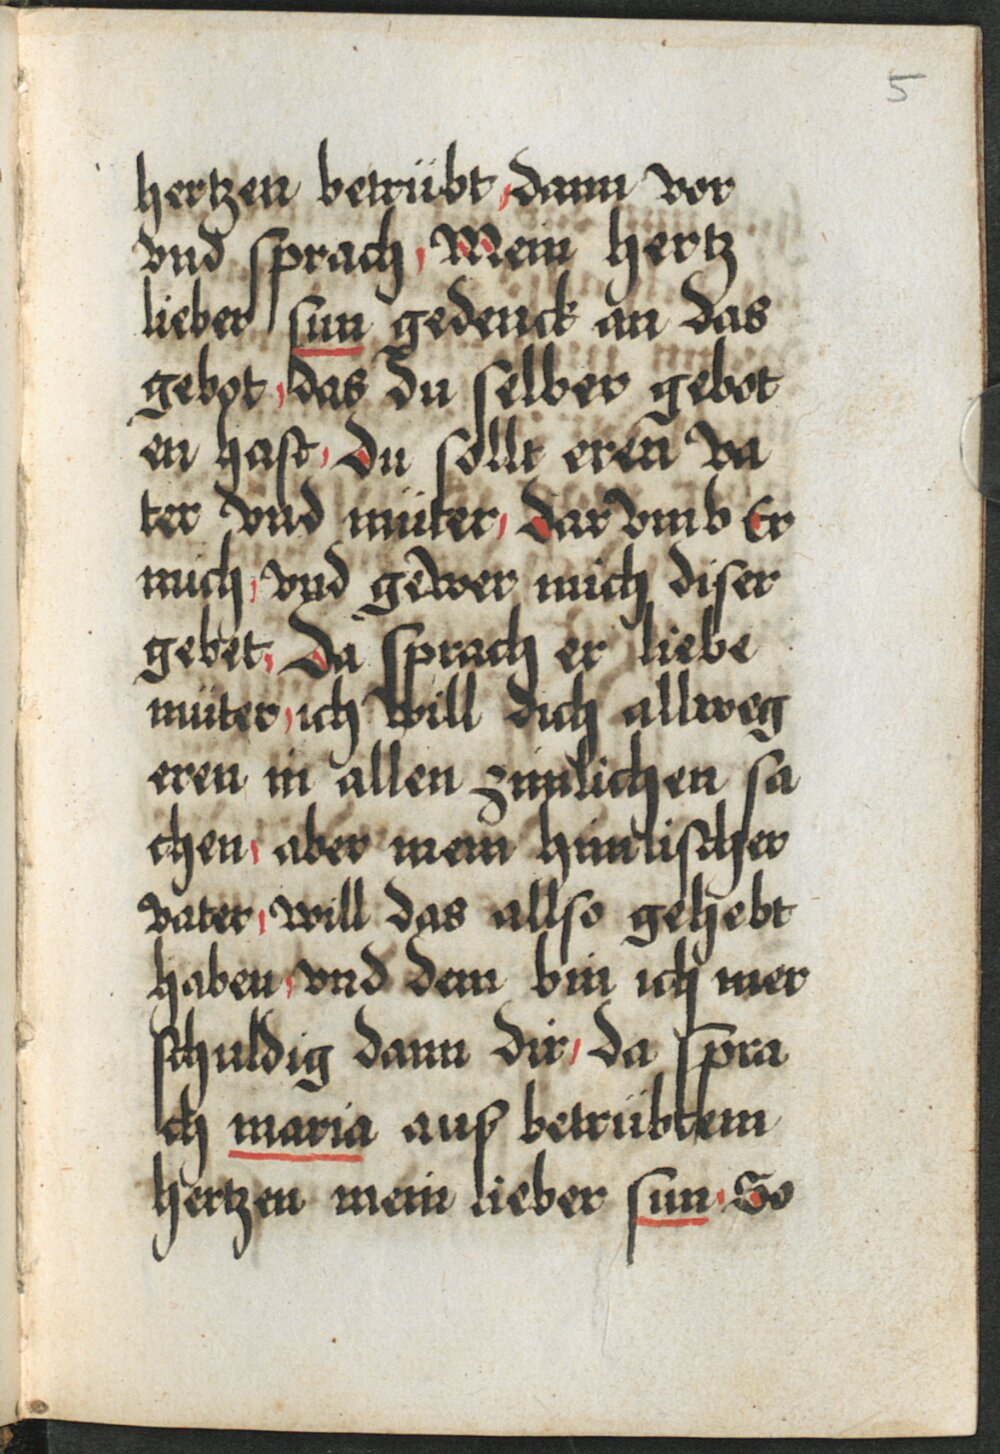 5
hertzen betrübt, dann vor
vnd sprach, Mein hertz
lieber sun gedenck an das
gebot, das du selber gebot
en hast, du sollt eren va
ter vnd müter, dar vmb Er
mich, vnd gewer mich diser
gebet, Da sprach er liebe
müter, ich will dich allweg
eren in allen zimlichen sa
chen, aber mein himlischer
vater, will das allso gehebt
haben, vnd dem bin ich mer
schuldig dann dir, da spra
ch maria auß betrübtem
hertzen mein lieber sun, So